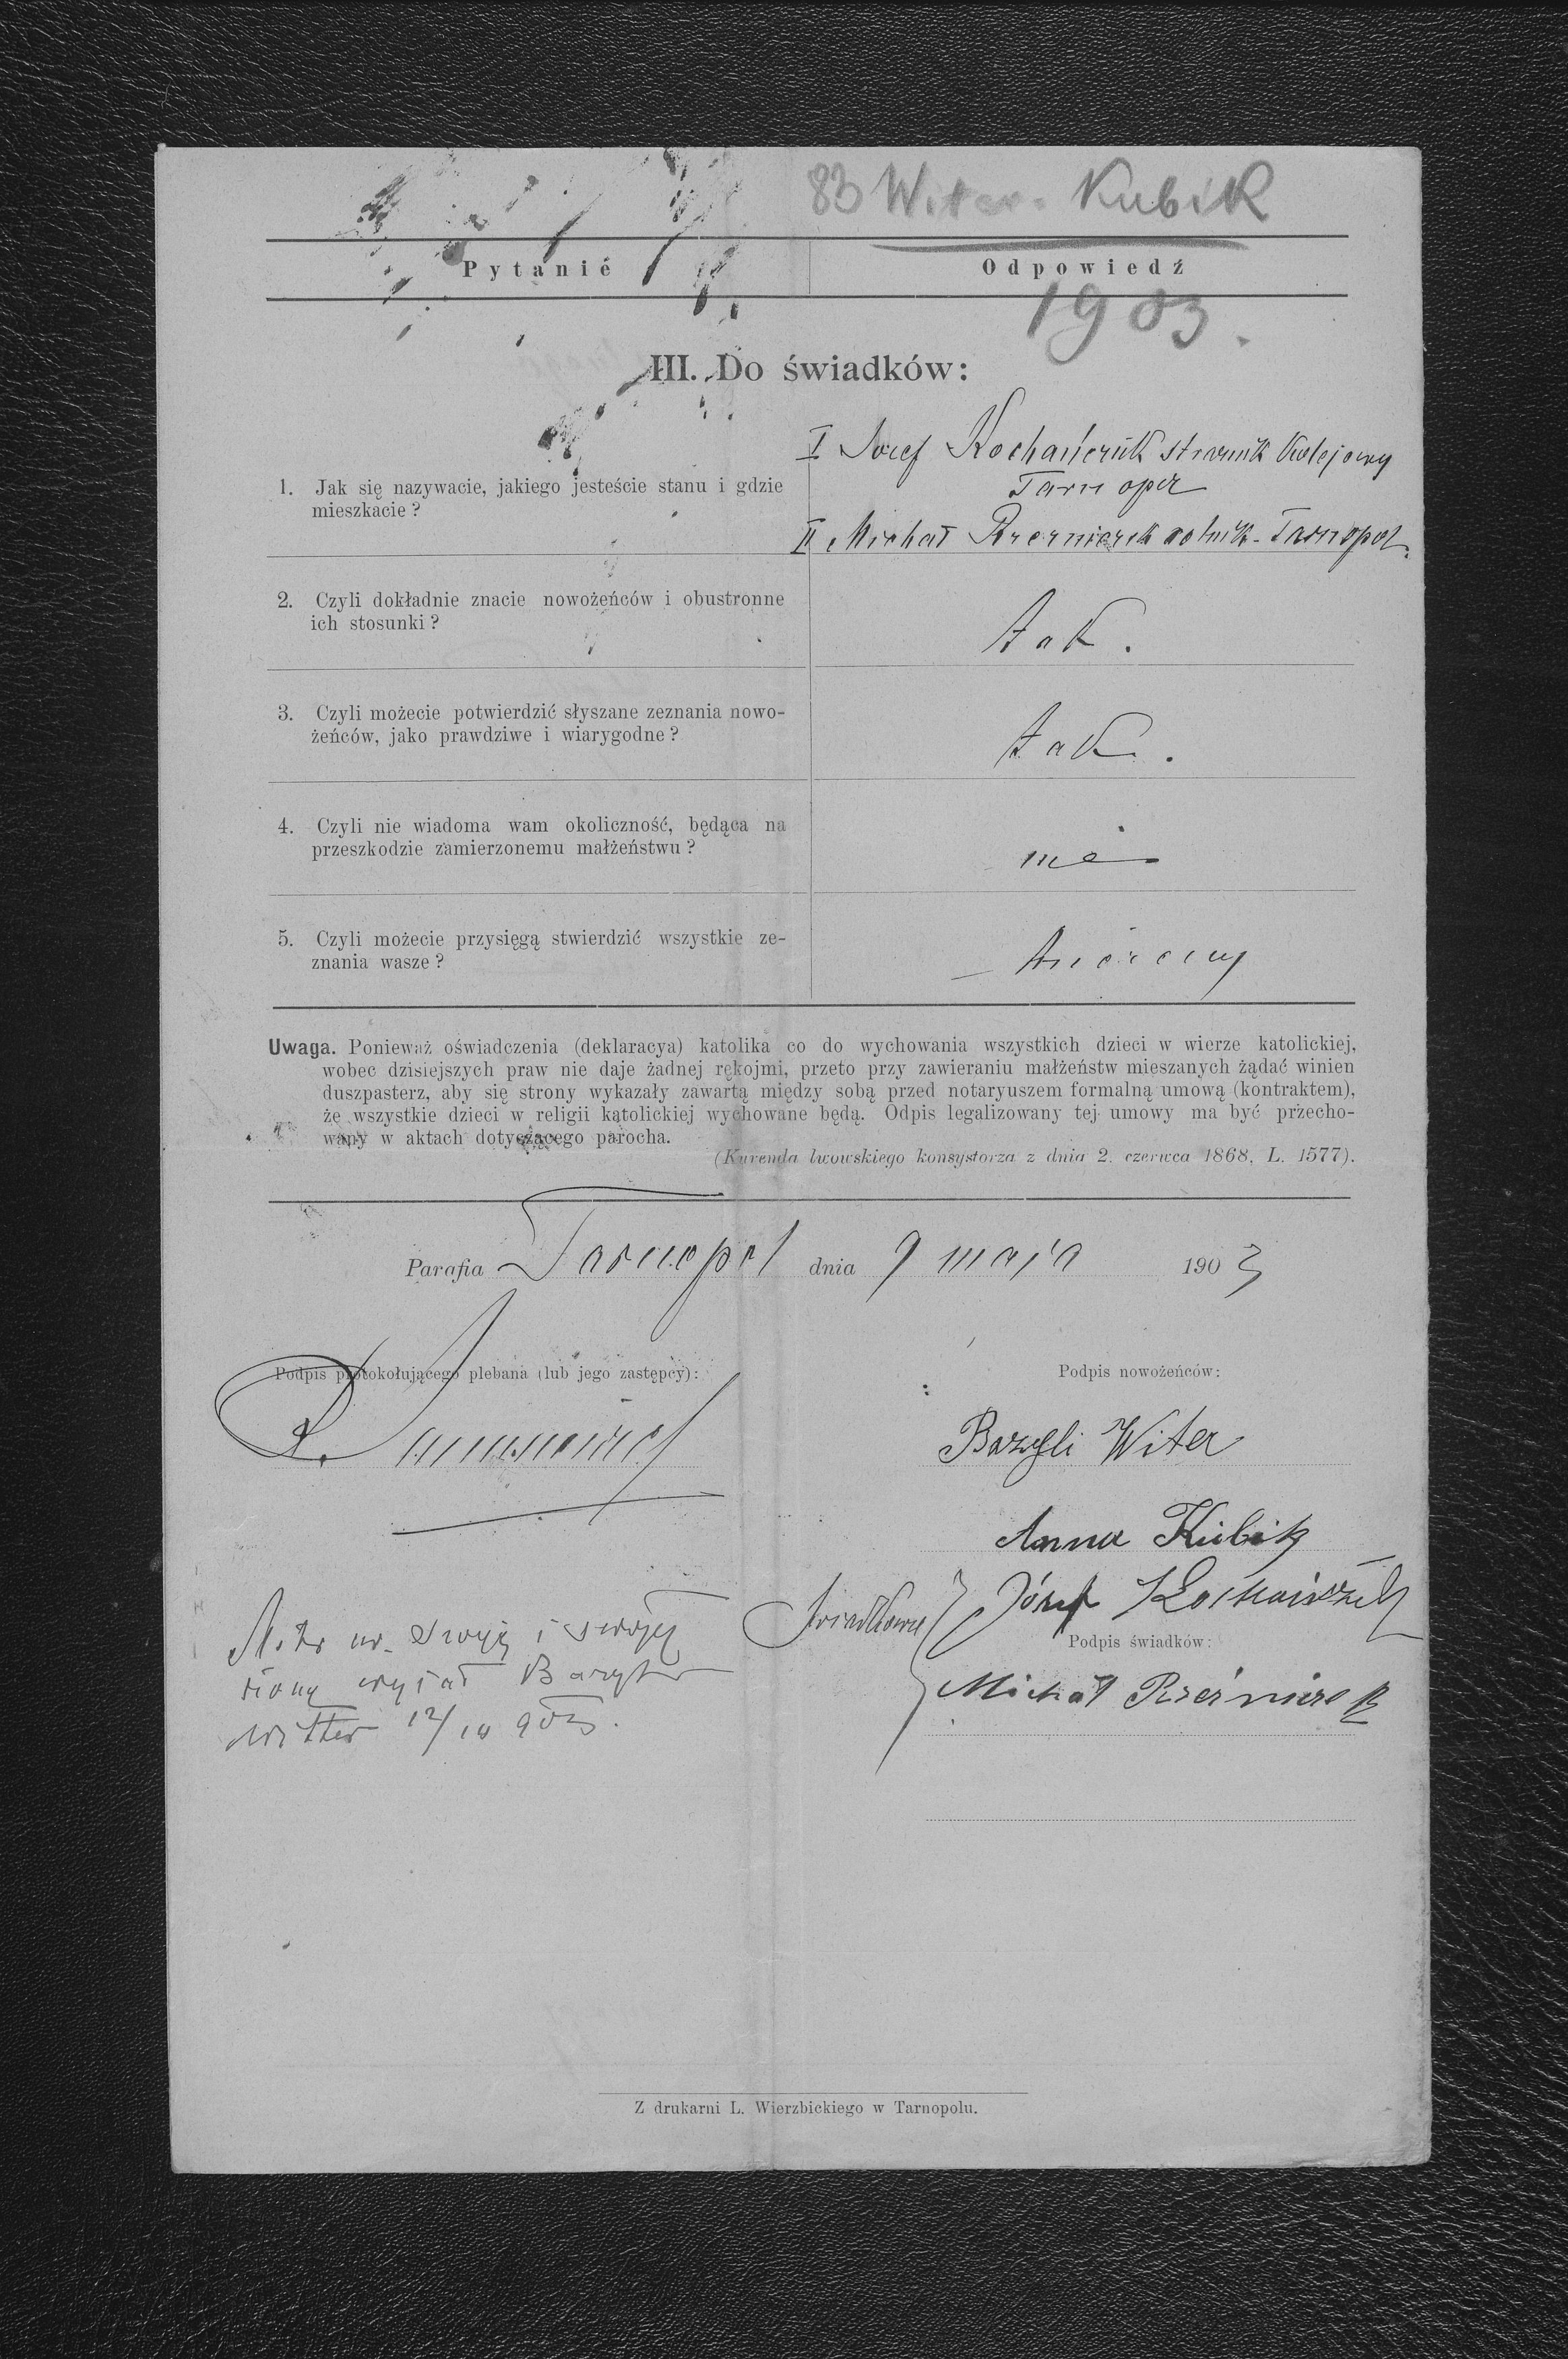 83 Witer - Kubik
Pytanie Odpowiedź
1903.
III. Do świadków:
I Józef Kochańczuk strażnik kolejowy
Tarnopol
1. Jak się nazywacie, jakiego jesteście stanu i gdzie
mieszkacie?
II Michał rolnik - Tarnopol.
2. Czyli dokładnie znacie nowożeńców i obustronne
ich stosunki?
tak.
3. Czyli możecie potwierdzić słyszane zeznania nowo-
żeńców, jako prawdziwe i wiarygodne?
tak.
4. Czyli nie wiadoma wam okoliczność, będąca na
przeszkodzie zamierzonemu małżeństwu?
nie
5. Czyli możecie przysięgą stwierdzić wszystkie ze-
znania wasze?
Uwaga. Ponieważ oświadczenia (deklaracya) katolika co do wychowania wszystkich dzieci w wierze katolickiej,
wobec dzisiejszych praw nie daje żadnej rękojmi, przeto przy zawieraniu małżeństw mieszanych żądać winien
duszpasterz, aby się strony wykazały zawartą między sobą przed notaryuszem formalną umową (kontraktem),
że wszystkie dzieci w religii katolickiej wychowane będą. Odpis legalizowany tej umowy ma być przecho-
wany w aktach dotyczącego parocha.
(Kurenda lwowskiego konsystorza z dnia 2. czerwca 1868, L. 1577).
Parafia Tarnopol dnia 9 maja 1903
Podpis protokołującego plebana (lub jego zastępcy): Podpis nowożeńców:
Bazyli Witer
Anna Kubik
Świadkowie Józef
Podpis świadków:
Michał
Metr ur. swoją i swojej
żony wyjął Bazyli
Witter 12/10 903.
Z drukarni L. Wierzbickiego w Tarnopolu.